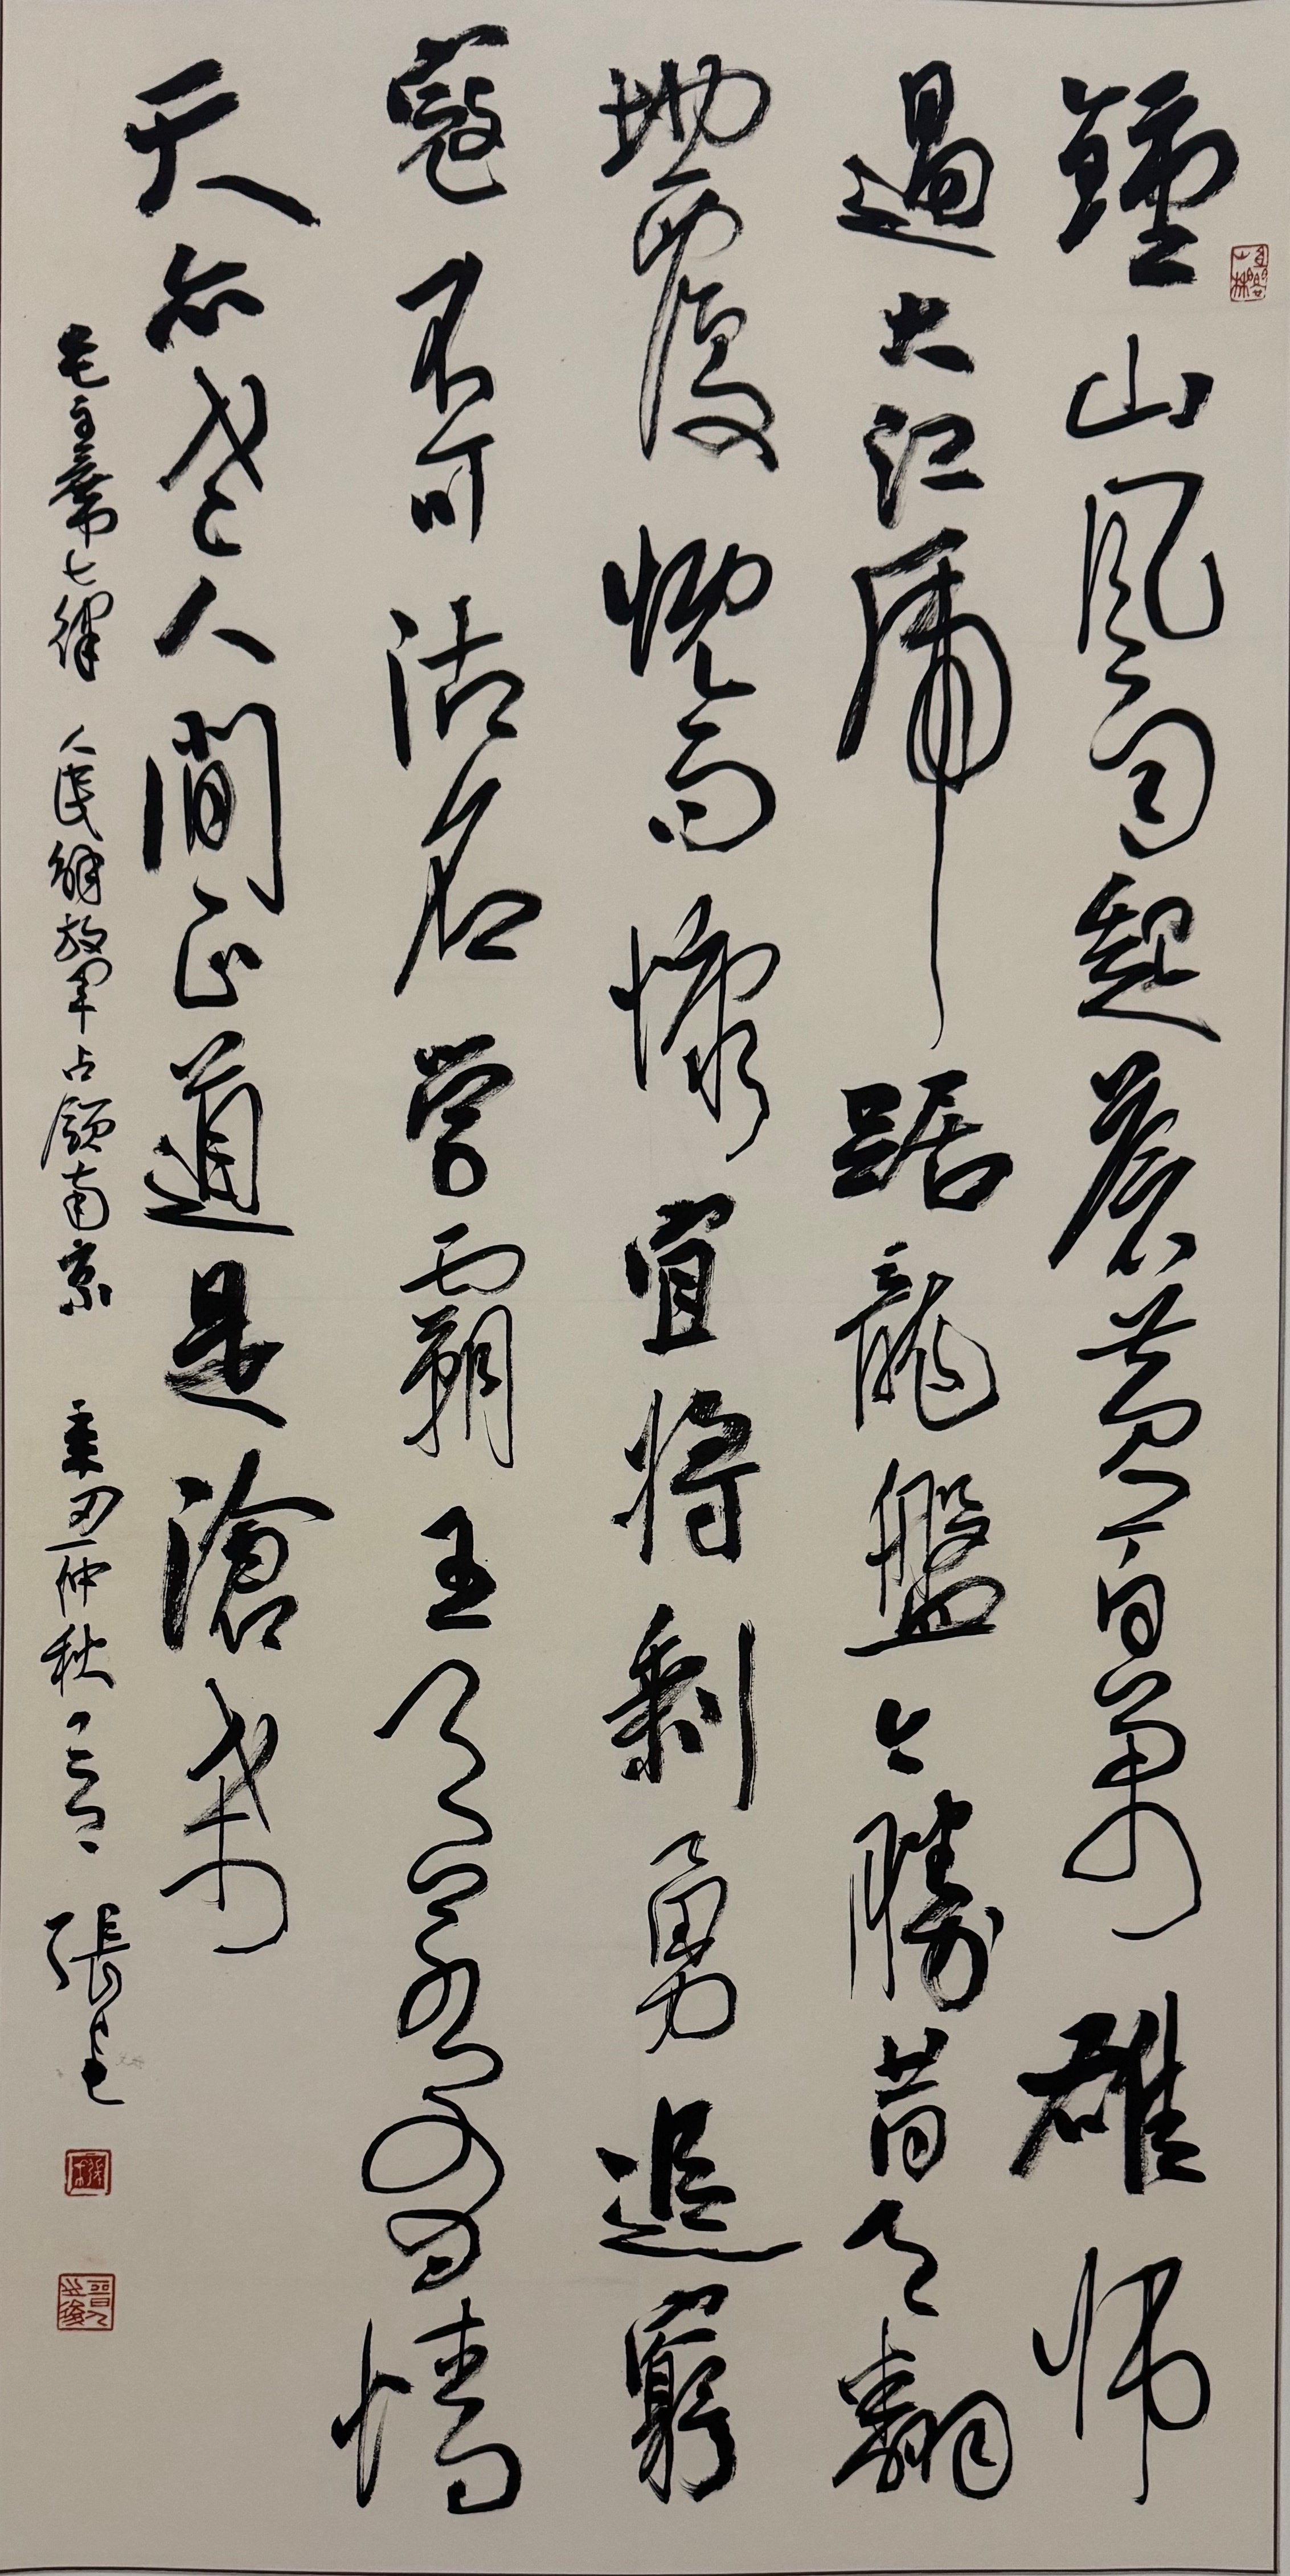 鍾山風雨起蒼黃百萬雄師
過大江虎踞龍盤今勝昔天翻
地覆慨而慷宜將剩勇追窮
寇不可沽名學霸王天若有情
天亦老人間正道是滄桑
毛主席七律 人民解放軍占領南京 辛丑仲秋 張